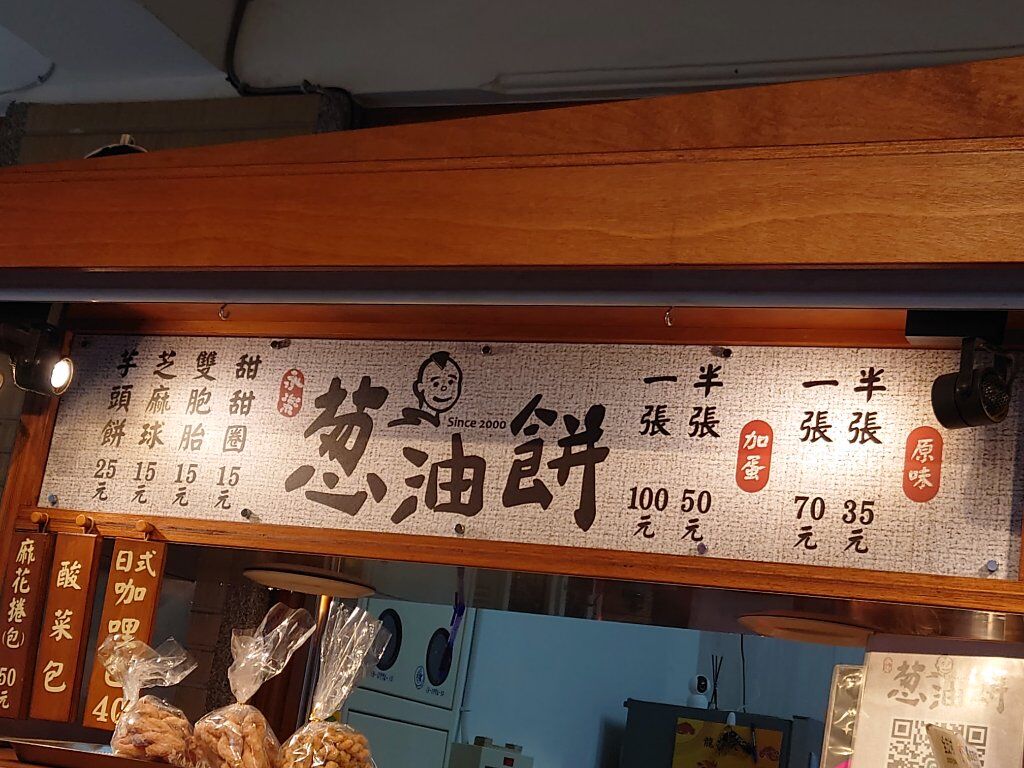 原味
半張 35元
一張 70元
加蛋
半張 50元
一張 100元
永樂
蔥油餅
Since 2000
甜甜圈 15元
雙胞胎 15元
芝麻球 15元
芋頭餅 25元
日式咖哩
40
酸菜包
麻花捲(包) 50元
蔥油餅
龍